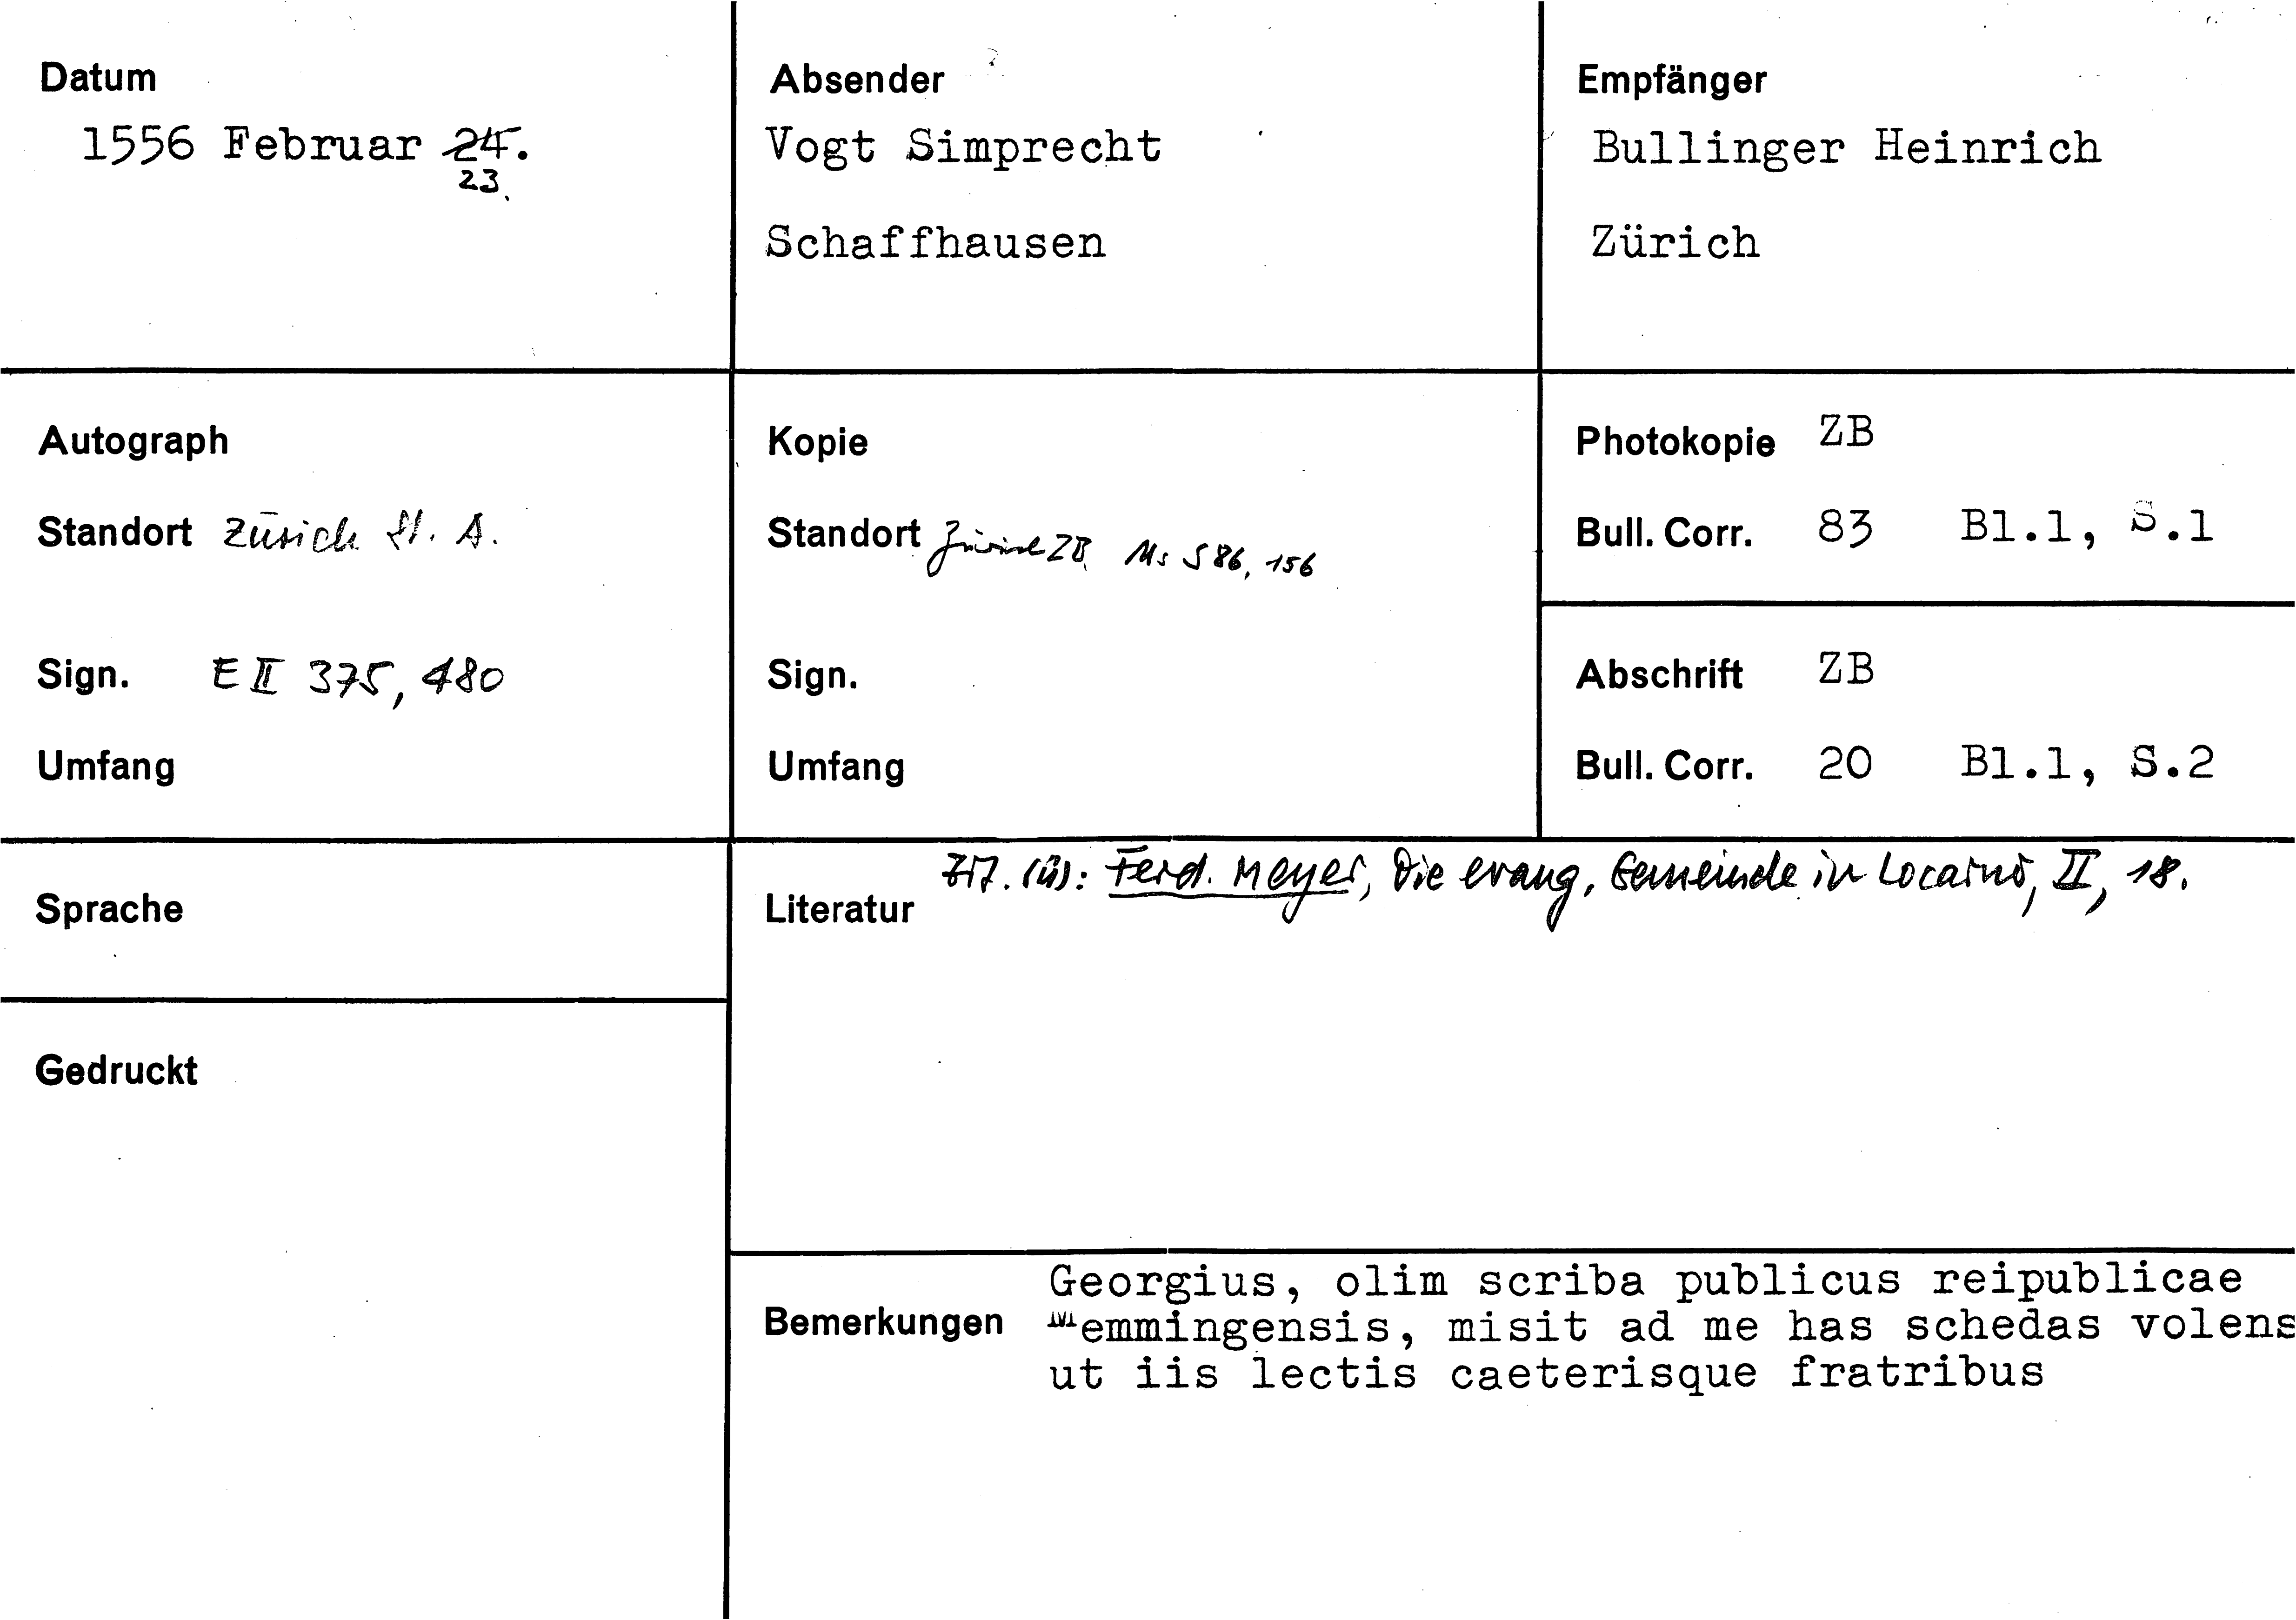 Datum
1556 Februar 24.
23.
Absender
Vogt Simprecht
Schaffhausen
Empfänger
Bullinger Heinrich
Zürich
Autograph
Standort Zürich St. A.
Sign. E II 375, 480
Umfang
Kopie
Standort Zürich ZB, Ms S 86, 156
Sign.
Umfang
Photokopie ZB
Bull. Corr. 83 Bl.1, S.1
Abschrift ZB
Bull. Corr. 20 Bl.1, S.2
Sprache
Gedruckt
Zit. (ü): Ferd. Meyer, Die evang. Gemeinde in Locarno, II, 18.
Literatur
Bemerkungen
Georgius, olim scriba publicus reipublicae
Memmingensis, misit ad me has schedas volens
ut iis lectis caeterisque fratribus